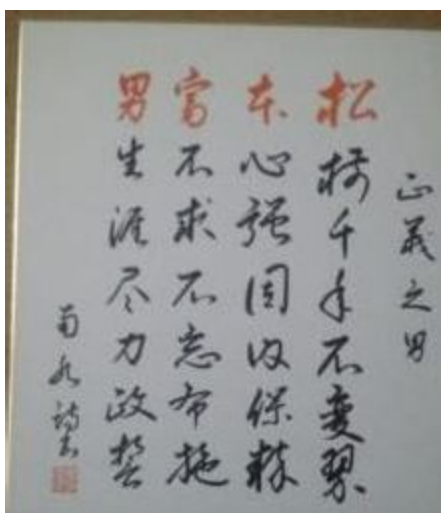 正義之男
松樹千年不変翠
本心強固内保粋
富不求不忘布施
男生涯尽力政
菊水